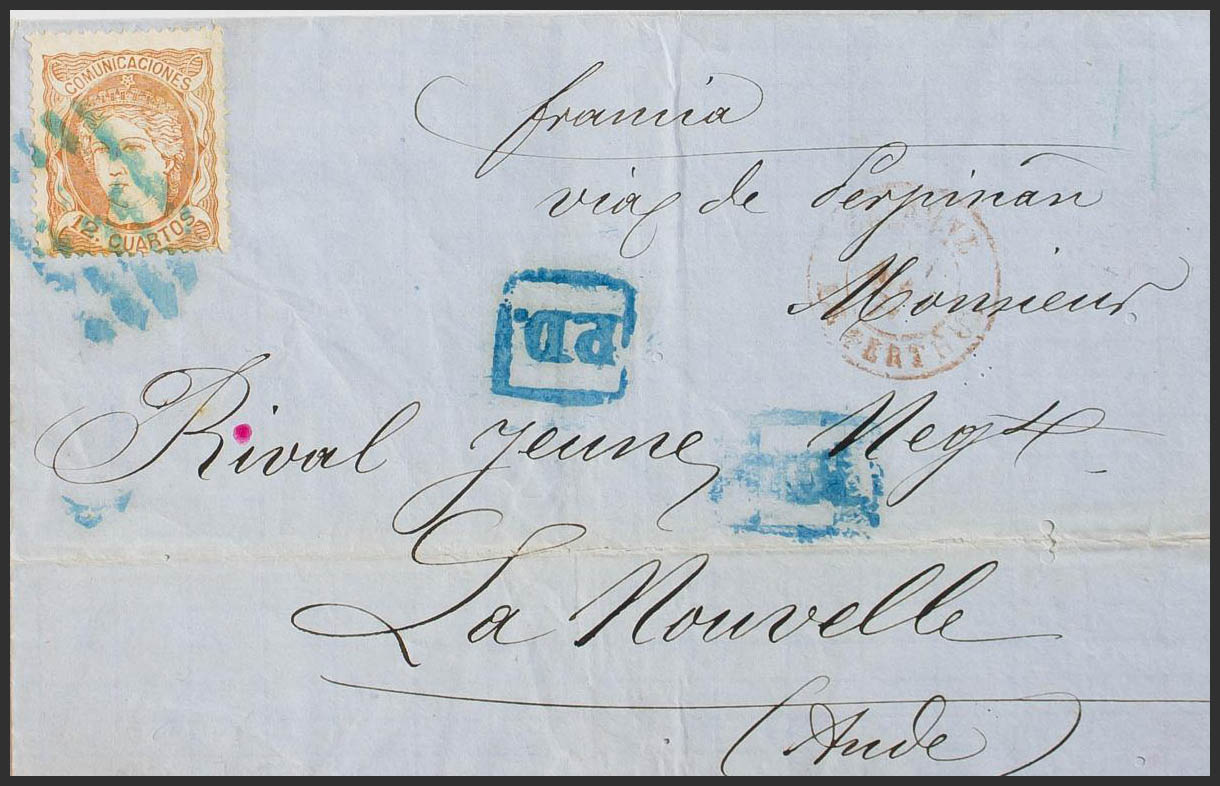 COMUNICACIONES
12. CUARTOS
francia
via de Perpiñan
Monsieur
P.D.
Rival jeune Negt
La Nouvelle
(Aude)